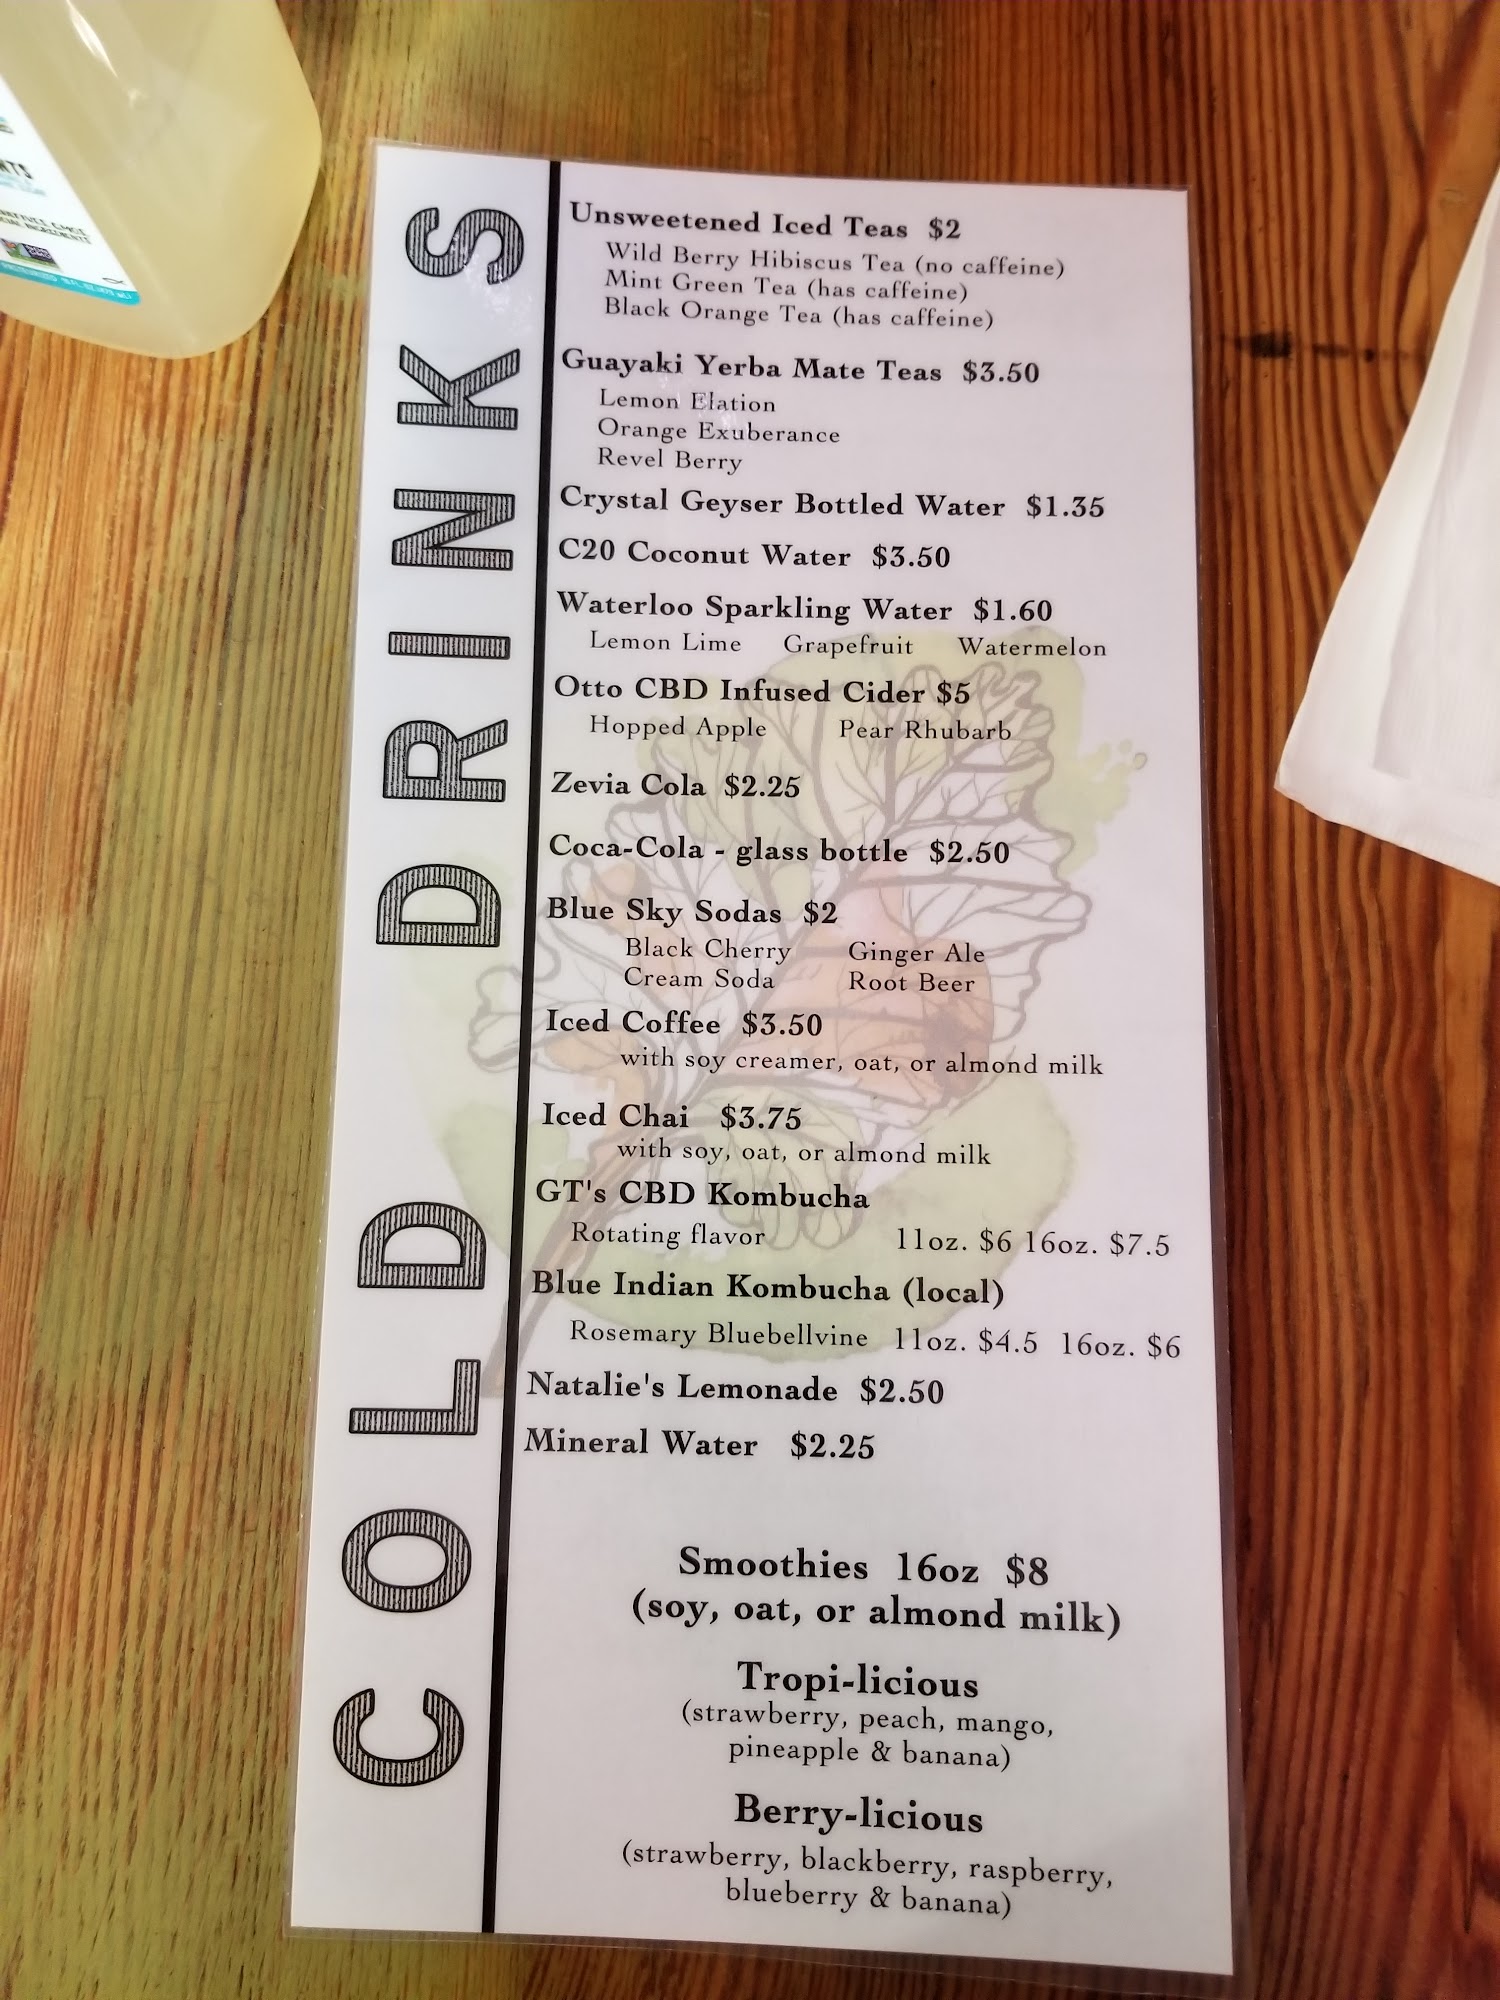 NTS
COLD DRINKS
Unsweetened Iced Teas $2
Wild Berry Hibiscus Tea (no caffeine)
Mint Green Tea (has caffeine)
Black Orange Tea (has caffeine)
Guayaki Yerba Mate Teas $3.50
Lemon Elation
Orange Exuberance
Revel Berry
Crystal Geyser Bottled Water $1.35
C20 Coconut Water $3.50
Waterloo Sparkling Water $1.60
Lemon Lime Grapefruit Watermelon
Otto CBD Infused Cider $5
Hopped Apple Pear Rhubarb
Zevia Cola $2.25
Coca-Cola - glass bottle $2.50
Blue Sky Sodas $2
Black Cherry Ginger Ale
Cream Soda Root Beer
Iced Coffee $3.50
with soy creamer, oat, or almond milk
Iced Chai $3.75
with soy, oat, or almond milk
GT's CBD Kombucha
Rotating flavor 11oz. $6 16oz. $7.5
Blue Indian Kombucha (local)
Rosemary Bluebellvine 11oz. $4.5 16oz. $6
Natalie's Lemonade $2.50
Mineral Water $2.25
Smoothies 16oz $8
(soy, oat, or almond milk)
Tropi-licious
(strawberry, peach, mango,
pineapple & banana)
Berry-licious
(strawberry, blackberry, raspberry,
blueberry & banana)